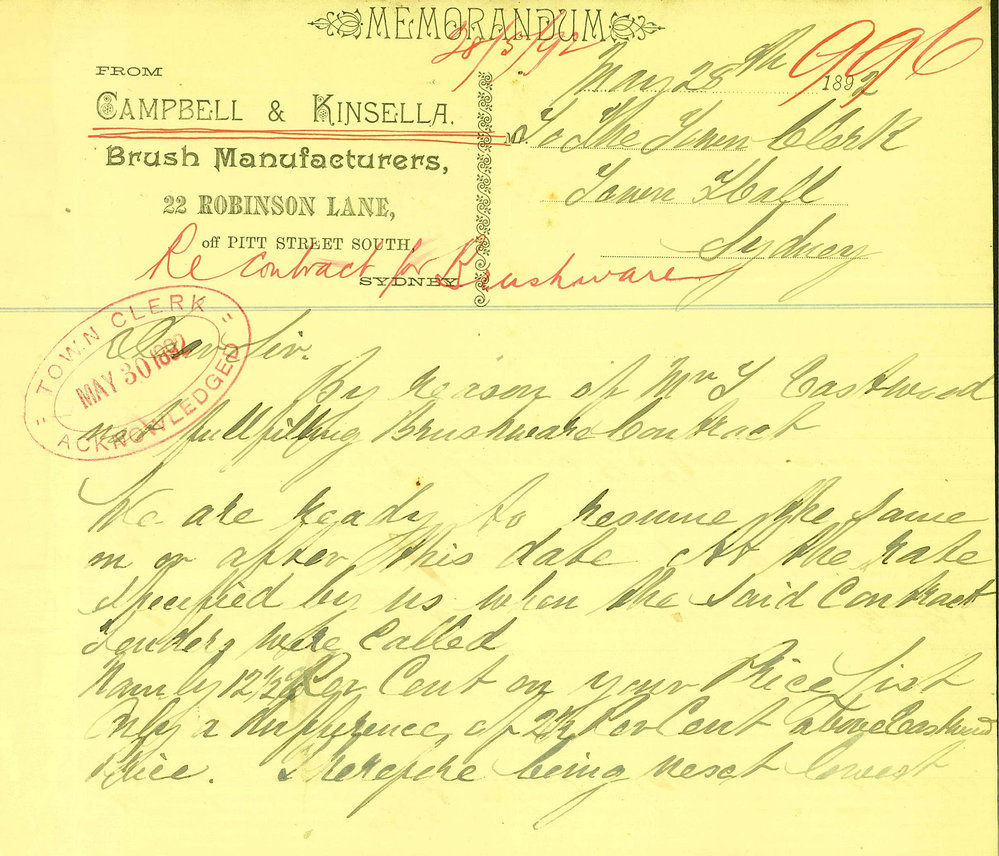 MEMORANDUM
28/5/92
996
May 28th 1892
FROM
CAMPBELL & KINSELLA.
Brush Manufacturers,
22 ROBINSON LANE,
off PITT STREET SOUTH,
SYDNEY
Mr. To The Town Clerk
Town Hall
Sydney
Re contract for Brushware
TOWN CLERK
MAY 30 1892
ACKNOWLEDGED
Dear Sir.
By reason of Mr T Eastwood
not fullfilling Brushware Contract
We are ready to resume the same
on or after this date At the rate
specified by us when the said Contract
Tenders were Called
Namly 12½ Per Cent on your Price List
Only a difference of 2½ Per Cent above Eastwood
Price. Therefore being next lowest